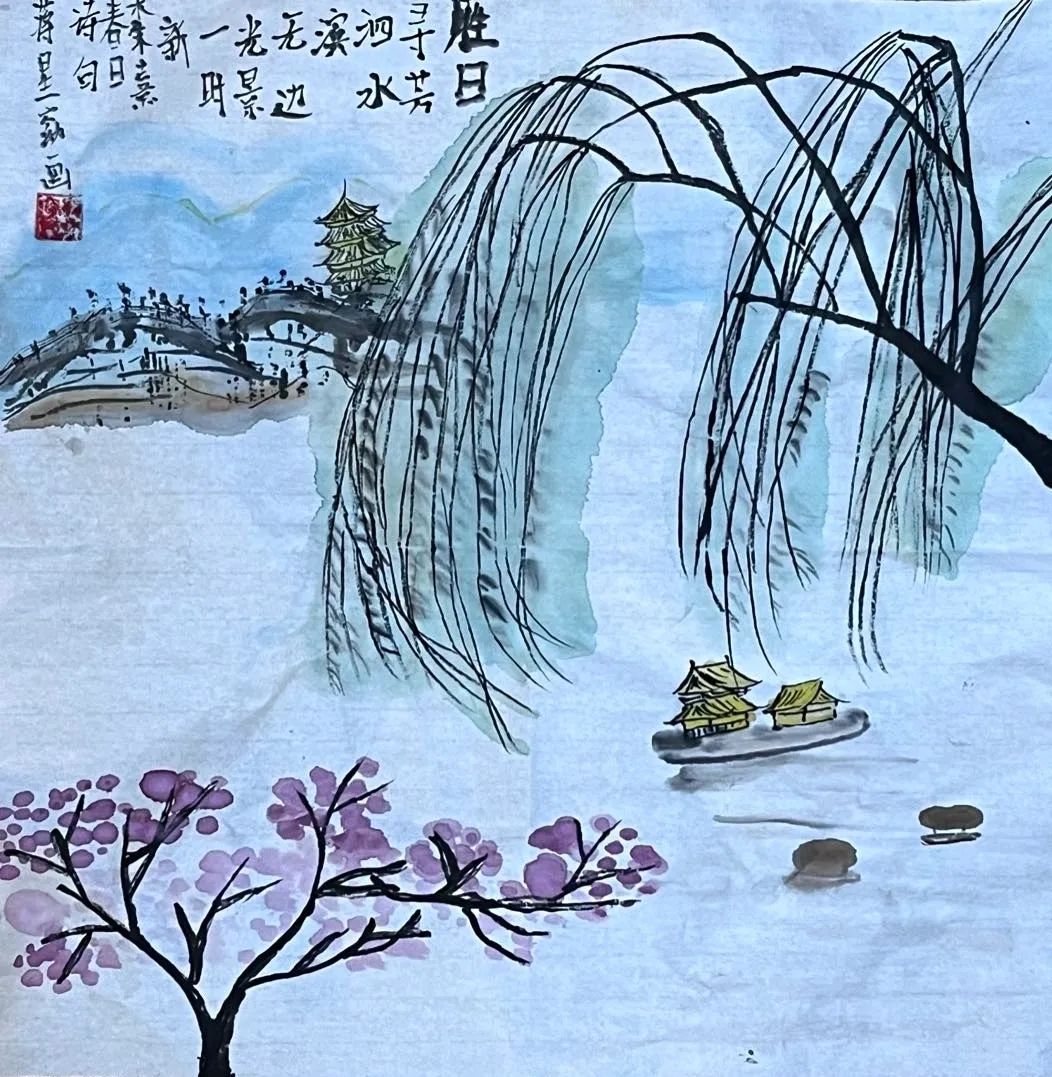 胜日
寻芳
泗水
滨
无边
光景
一时
新
朱熹
春日
诗句
蒋星画